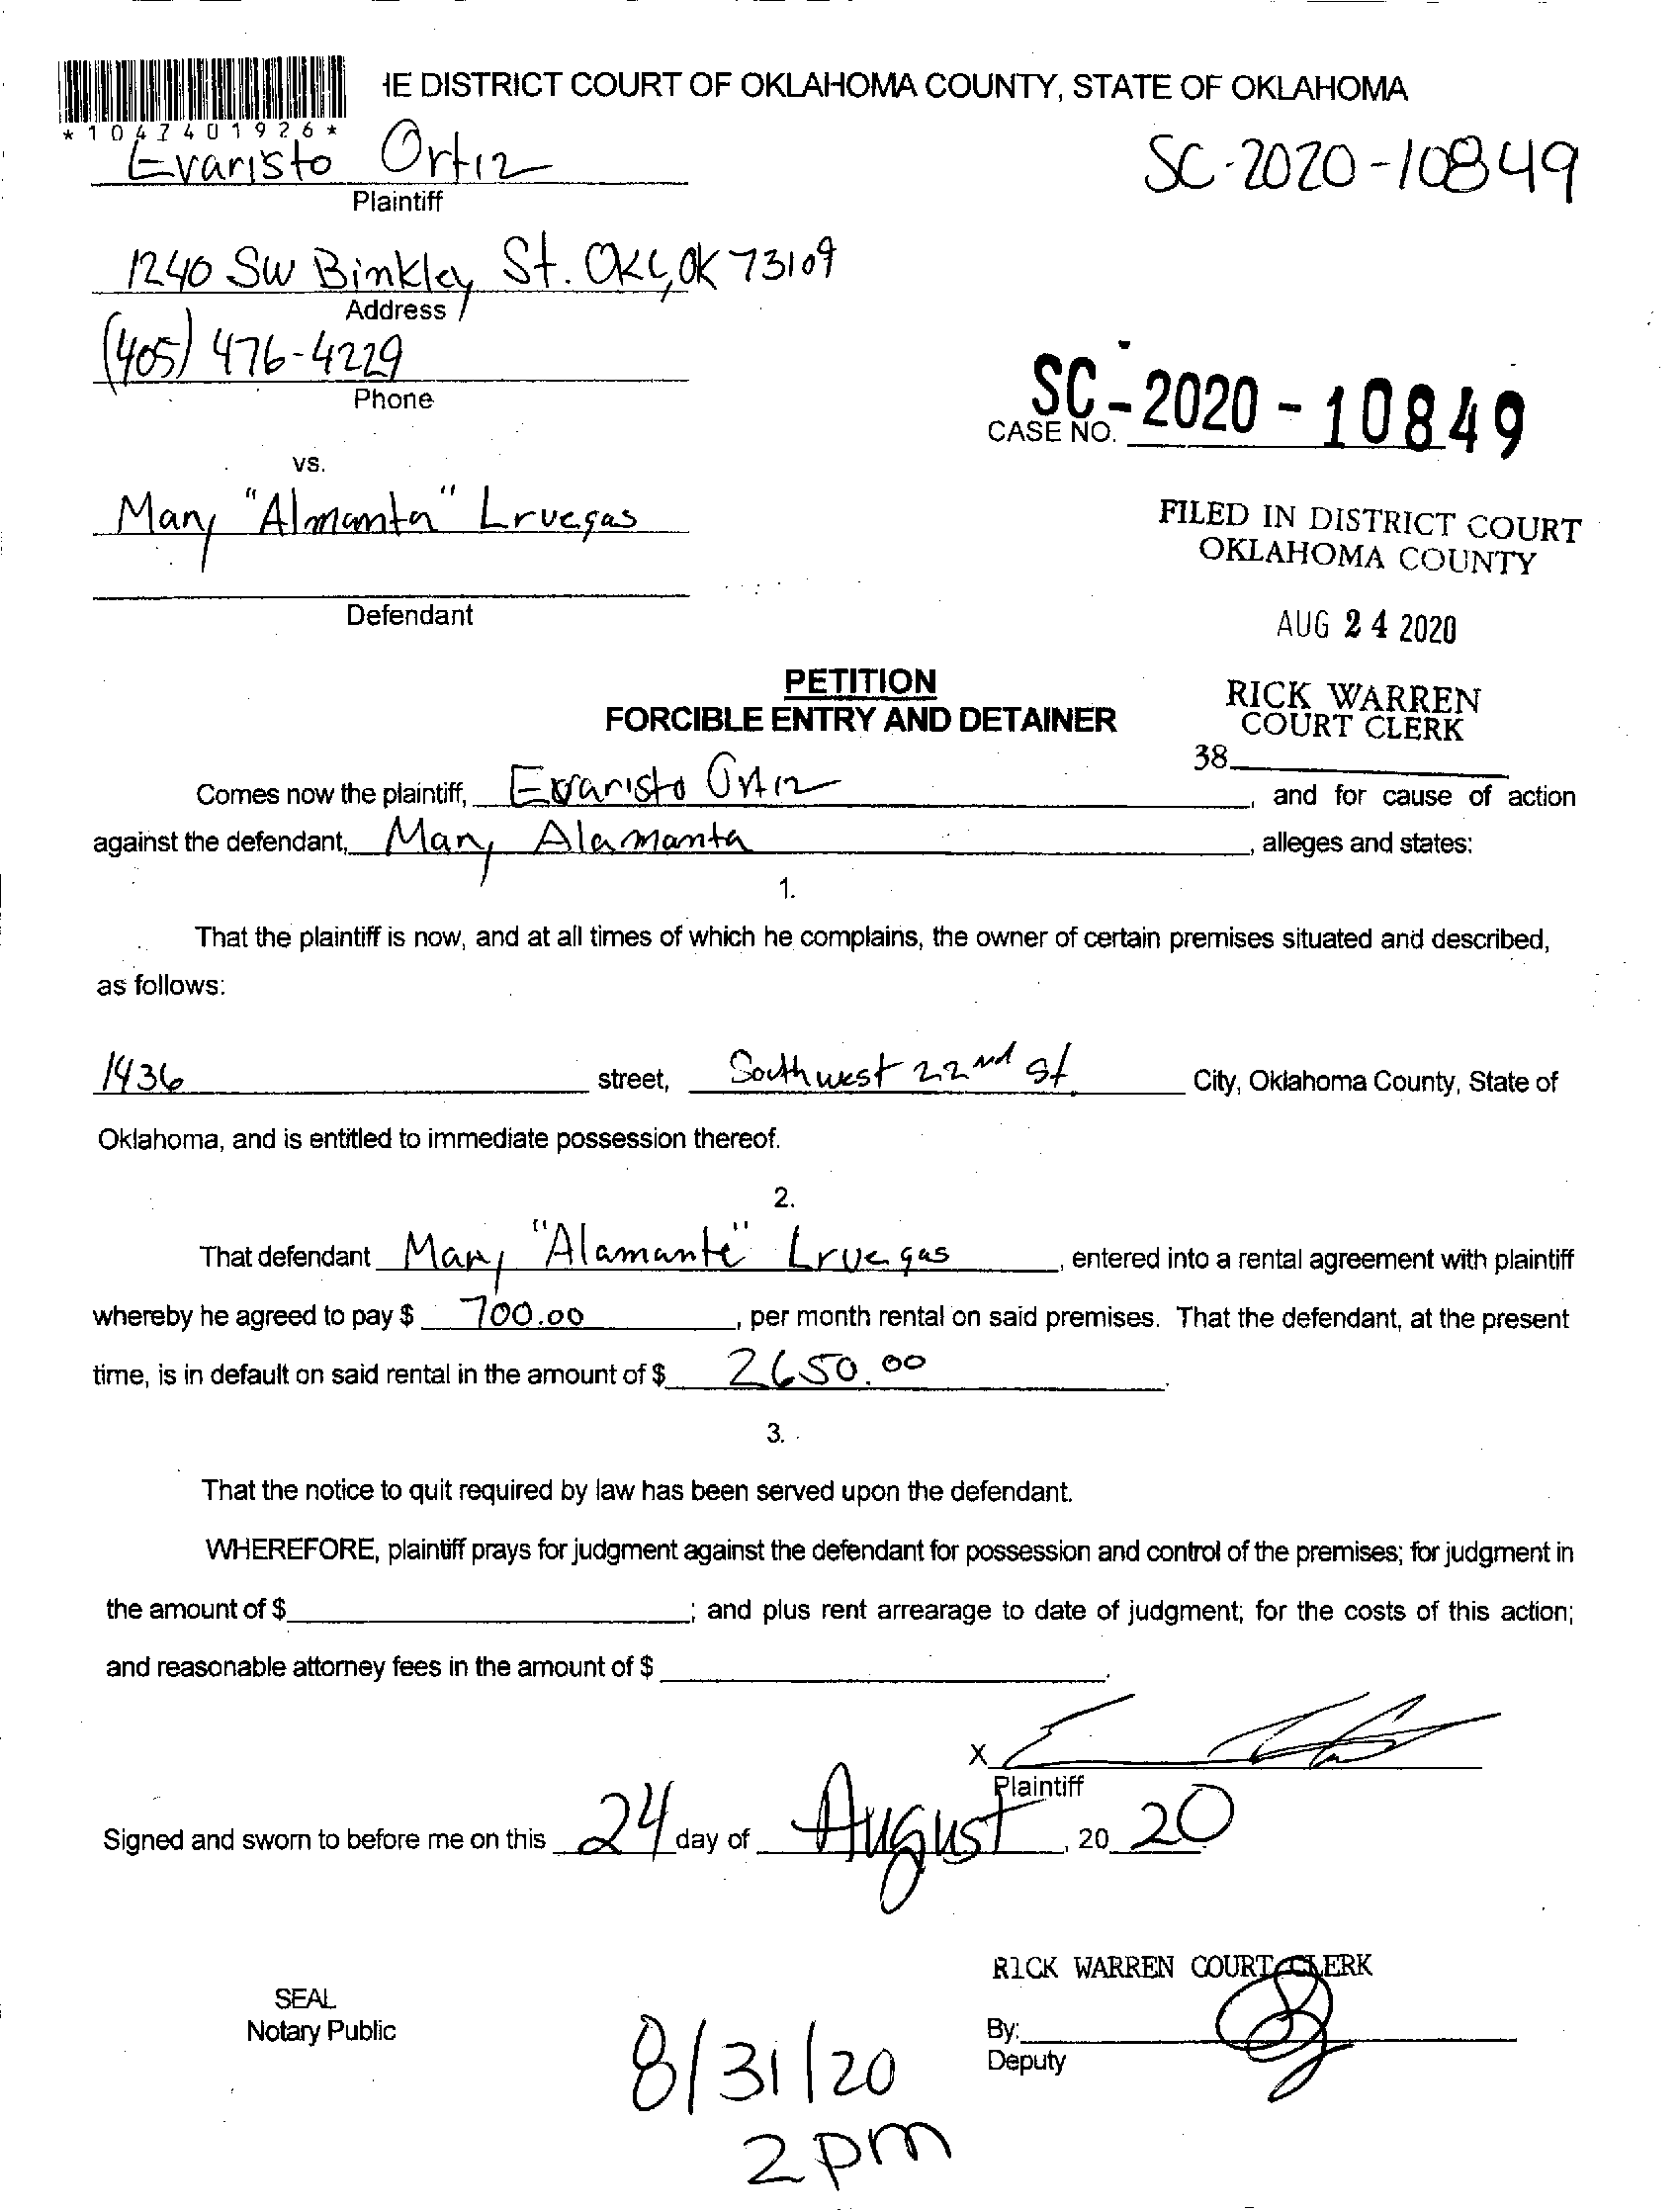 IE DISTRICT COURT OF OKLAHOMA COUNTY, STATE OF OKLAHOMA
*1047401926*
Evaristo Ortiz
SC-2020-10849
Plaintiff
1240 SW Binkley St. OKC, OK 73109
Address
(405) 476-4229
Phone
SC-2020-10849
CASE NO.
vs.
Mary "Almanta" Lruegas
FILED IN DISTRICT COURT
OKLAHOMA COUNTY
Defendant
AUG 24 2020
PETITION
RICK WARREN
FORCIBLE ENTRY AND DETAINER
COURT CLERK
38
Comes now the plaintiff, Evaristo Ortiz, and for cause of action
against the defendant, Mary Alamanta, alleges and states:
1.
That the plaintiff is now, and at all times of which he complains, the owner of certain premises situated and described,
as follows:
1436 street, Southwest 22nd st City, Oklahoma County, State of
Oklahoma, and is entitled to immediate possession thereof.
2.
That defendant Mary "Alamante" Lruegas, entered into a rental agreement with plaintiff
whereby he agreed to pay $ 700.00, per month rental on said premises. That the defendant, at the present
time, is in default on said rental in the amount of $ 2650.00.
3.
That the notice to quit required by law has been served upon the defendant.
WHEREFORE, plaintiff prays for judgment against the defendant for possession and control of the premises; for judgment in
the amount of $ ; and plus rent arrearage to date of judgment; for the costs of this action;
and reasonable attorney fees in the amount of $ .
X
Plaintiff
Signed and sworn to before me on this 24 day of August, 20 20
RICK WARREN COURT CLERK
SEAL
Notary Public
By:
Deputy
8/31/20
2pm